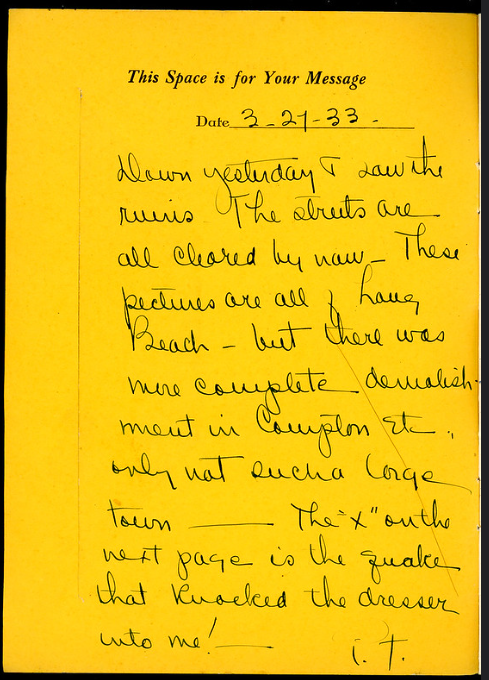 This Space is for Your Message
Date 3-21-33-
Down yesterday & saw the
ruins The streets are
all cleared by now - These
pictures are all of Long
Beach - but there was
more complete demolish-
ment in Compton Etc.,
only not such a large
town — The "x" on the
next page is the quake
that knocked the dresser
into me! —
I. F.